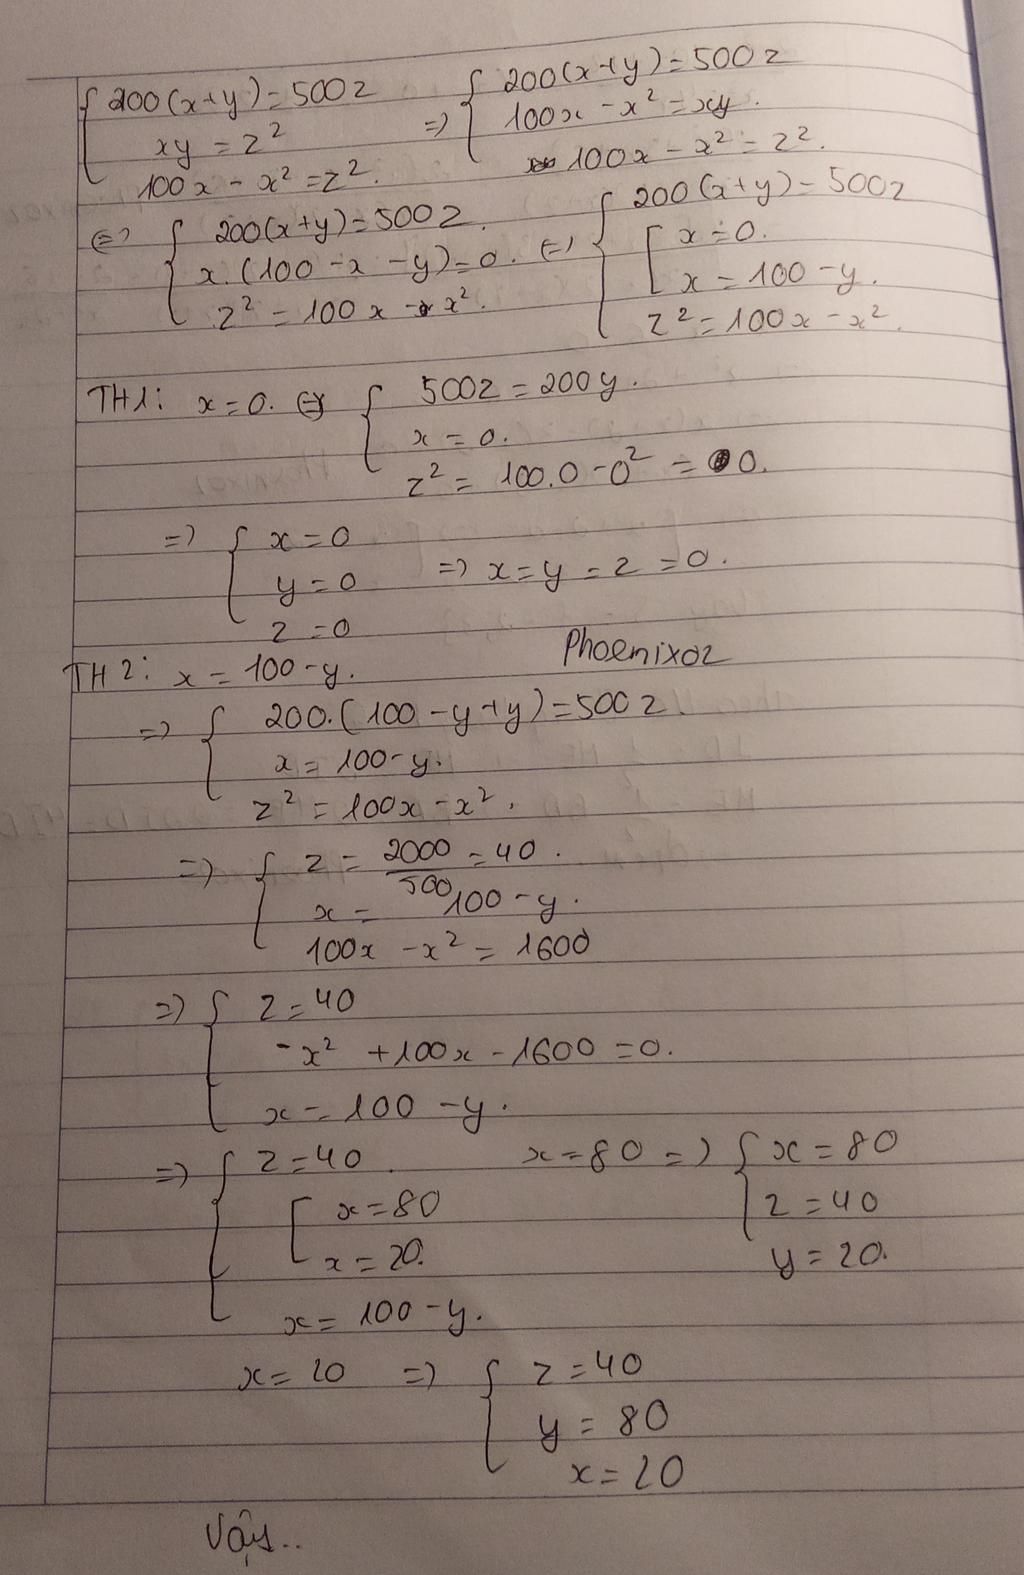 { 200(x+y) = 500z => { 200(x+y) = 500z
xy = z² 100x - x² = xy.
100x - x² = z². 100x - x² = z².
<=> { 200(x+y) = 500z. <=> { 200(x+y) = 500z
x.(100 - x - y) = 0. [ x = 0.
z² = 100x - x². x = 100 - y.
z² = 100x - x².
TH1: x = 0. <=> { 500z = 200y.
x = 0.
z² = 100.0 - 0² = 0.
=> { x = 0
y = 0 => x = y = z = 0.
z = 0
Phoenix02
TH2: x = 100 - y.
=> { 200.(100 - y + y) = 500z.
x = 100 - y.
z² = 100x - x².
=> { z = 2000/500 = 40.
x = 100 - y.
100x - x² = 1600
=> { z = 40
-x² + 100x - 1600 = 0.
x = 100 - y.
=> { z = 40. x = 80 => { x = 80
[ x = 80 z = 40
x = 20. y = 20.
x = 100 - y.
x = 20 => { z = 40
y = 80
x = 20
Vậy..